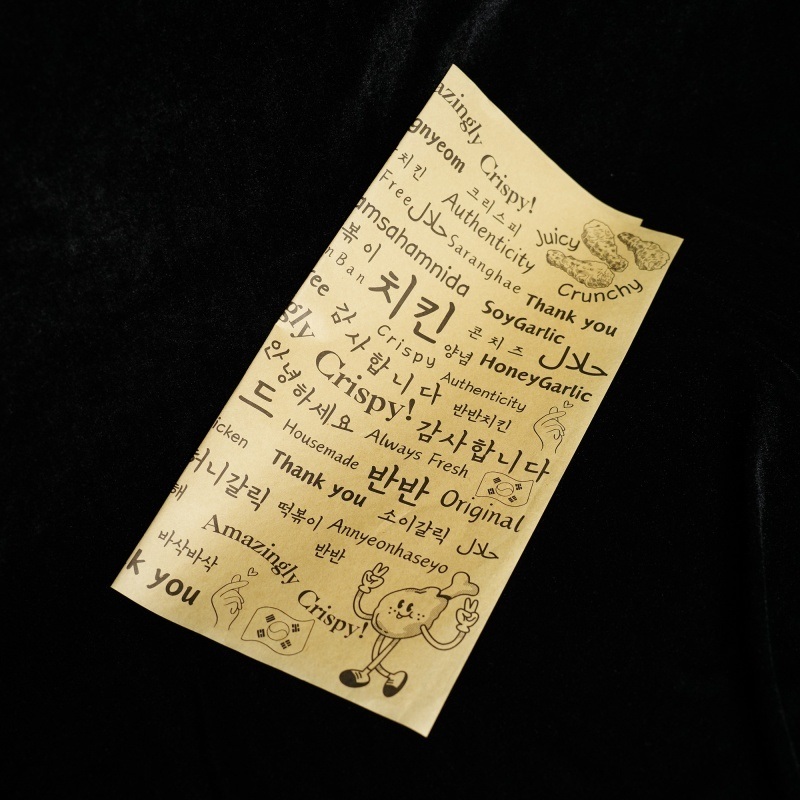 azingly
Crispy!
gnyeom
치킨
크리스피
Free حلال
Authenticity
Juicy
amsahamnida
Saranghae
Crunchy
볶이
n Ban
치킨
SoyGarlic
Thank you
ree
감사합니다
Crispy
양념
콘치즈
حلال
gly
Crispy!
Authenticity
HoneyGarlic
안녕하세요
반반치킨
드
감사합니다
icken
Housemade
Always Fresh
허니갈릭
Thank you
반반
Original
해
떡볶이
소이갈릭
حلال
바삭바삭
Amazingly
Crispy!
반반
Annyeonhaseyo
k you